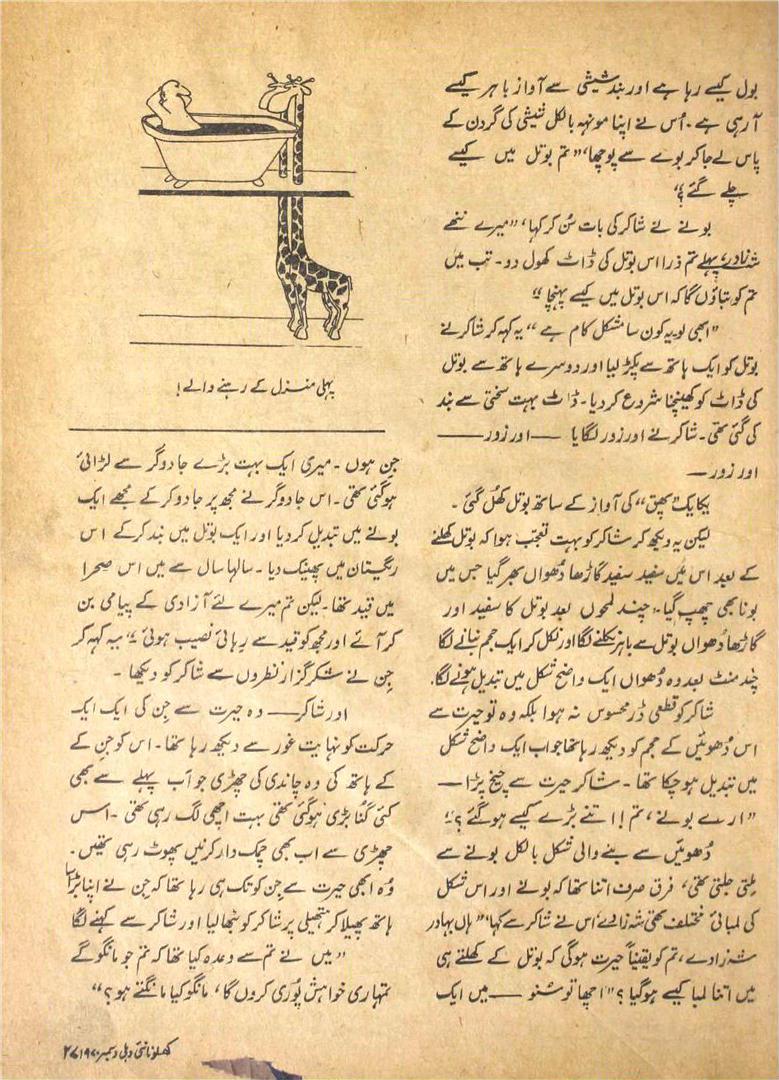 بول کیسے رہا ہے اور بند شیشی سے آواز باہر کیسے
آ رہی ہے۔ اُس نے اپنا مونہہ بالکل شیشی کی گردن کے
پاس لے جا کر بونے سے پوچھا، ”تم بوتل میں کیسے
چلے گئے؟“
بونے نے شاکر کی بات سُن کر کہا، ”میرے ننھے
شہزادے، پہلے تم ذرا اس بوتل کی ڈاٹ کھول دو۔ تب میں
تم کو بتاؤں گا کہ اس بوتل میں کیسے پہنچا۔“
”ابھی لو یہ کون سا مشکل کام ہے“ یہ کہہ کر شاکر نے
بوتل کو ایک ہاتھ سے پکڑ لیا اور دوسرے ہاتھ سے بوتل
کی ڈاٹ کو کھینچنا شروع کر دیا۔ ڈاٹ بہت سختی سے بند
کی گئی تھی۔ شاکر نے اور زور لگایا —— اور زور ——
اور زور —
یکایک ”بھق“ کی آواز کے ساتھ بوتل کھُل گئی۔
لیکن یہ دیکھ کر شاکر کو بہت تعجب ہوا کہ بوتل کھلنے
کے بعد اس میں سفید سفید گاڑھا دُھواں بھر گیا جس میں
بونا بھی چھپ گیا۔ چند لمحوں بعد بوتل کا سفید اور
گاڑھا دُھواں بوتل سے باہر نکلنے لگا اور نکل کر ایک حجم بنانے لگا
چند منٹ بعد وہ دُھواں ایک واضح شکل میں تبدیل ہونے لگا۔
شاکر کو قطعی ڈر محسوس نہ ہوا بلکہ وہ تو حیرت سے
اس دُھوئیں کے حجم کو دیکھ رہا تھا جو اب ایک واضح شکل
میں تبدیل ہو چکا تھا۔ شاکر حیرت سے چیخ پڑا —
”ارے بونے، تم!! اتنے بڑے کیسے ہو گئے؟“
دُھوئیں سے بننے والی شکل بالکل بونے سے
ملتی جلتی تھی، فرق صرف اتنا تھا کہ بونے اور اس شکل
کی لمبائی مختلف تھی شہزادے، اس نے شاکر سے کہا، ”ہاں بہادر
شہزادے، تم کو یقیناً حیرت ہوگی کہ بوتل کے کھلتے ہی
میں اتنا لمبا کیسے ہو گیا؟“ اچھا تو سُنو —— میں ایک
پہلی منزل کے رہنے والے!
جن ہوں۔ میری ایک بہت بڑے جادوگر سے لڑائی
ہو گئی تھی۔ اس جادوگر نے مجھ پر جادو کر کے مجھے ایک
بونے میں تبدیل کر دیا اور ایک بوتل میں بند کر کے اس
ریگستان میں پھینک دیا۔ سالہا سال سے میں اس صحرا
میں قید تھا۔ لیکن تم میرے لئے آزادی کے پیامی بن
کر آئے اور مجھ کو قید سے رہائی نصیب ہوئی“ یہ کہہ کر
جن نے شکر گزار نظروں سے شاکر کو دیکھا۔
اور شاکر —— وہ حیرت سے جن کی ایک ایک
حرکت کو نہایت غور سے دیکھ رہا تھا۔ اس کو جن کے
کے ہاتھ کی وہ چاندی کی چھڑی جو اب پہلے سے بھی
کئی گنُا بڑی ہو گئی تھی بہت اچھی لگ رہی تھی۔ اس
چھڑی سے اب بھی چمک دار کرنیں پھوٹ رہی تھیں۔
وہ ابھی حیرت سے جن کو تک ہی رہا تھا کہ جن نے اپنا بڑا سا
ہاتھ پھیلا کر ہتھیلی پر شاکر کو بٹھا لیا اور شاکر سے کہنے لگا
”میں نے تم سے وعدہ کیا تھا کہ تم جو مانگو گے
تمہاری خواہش پوری کروں گا، مانگو کیا مانگتے ہو؟“
کھلونا نئی دہلی دسمبر ۱۹۷۰ ۲۷